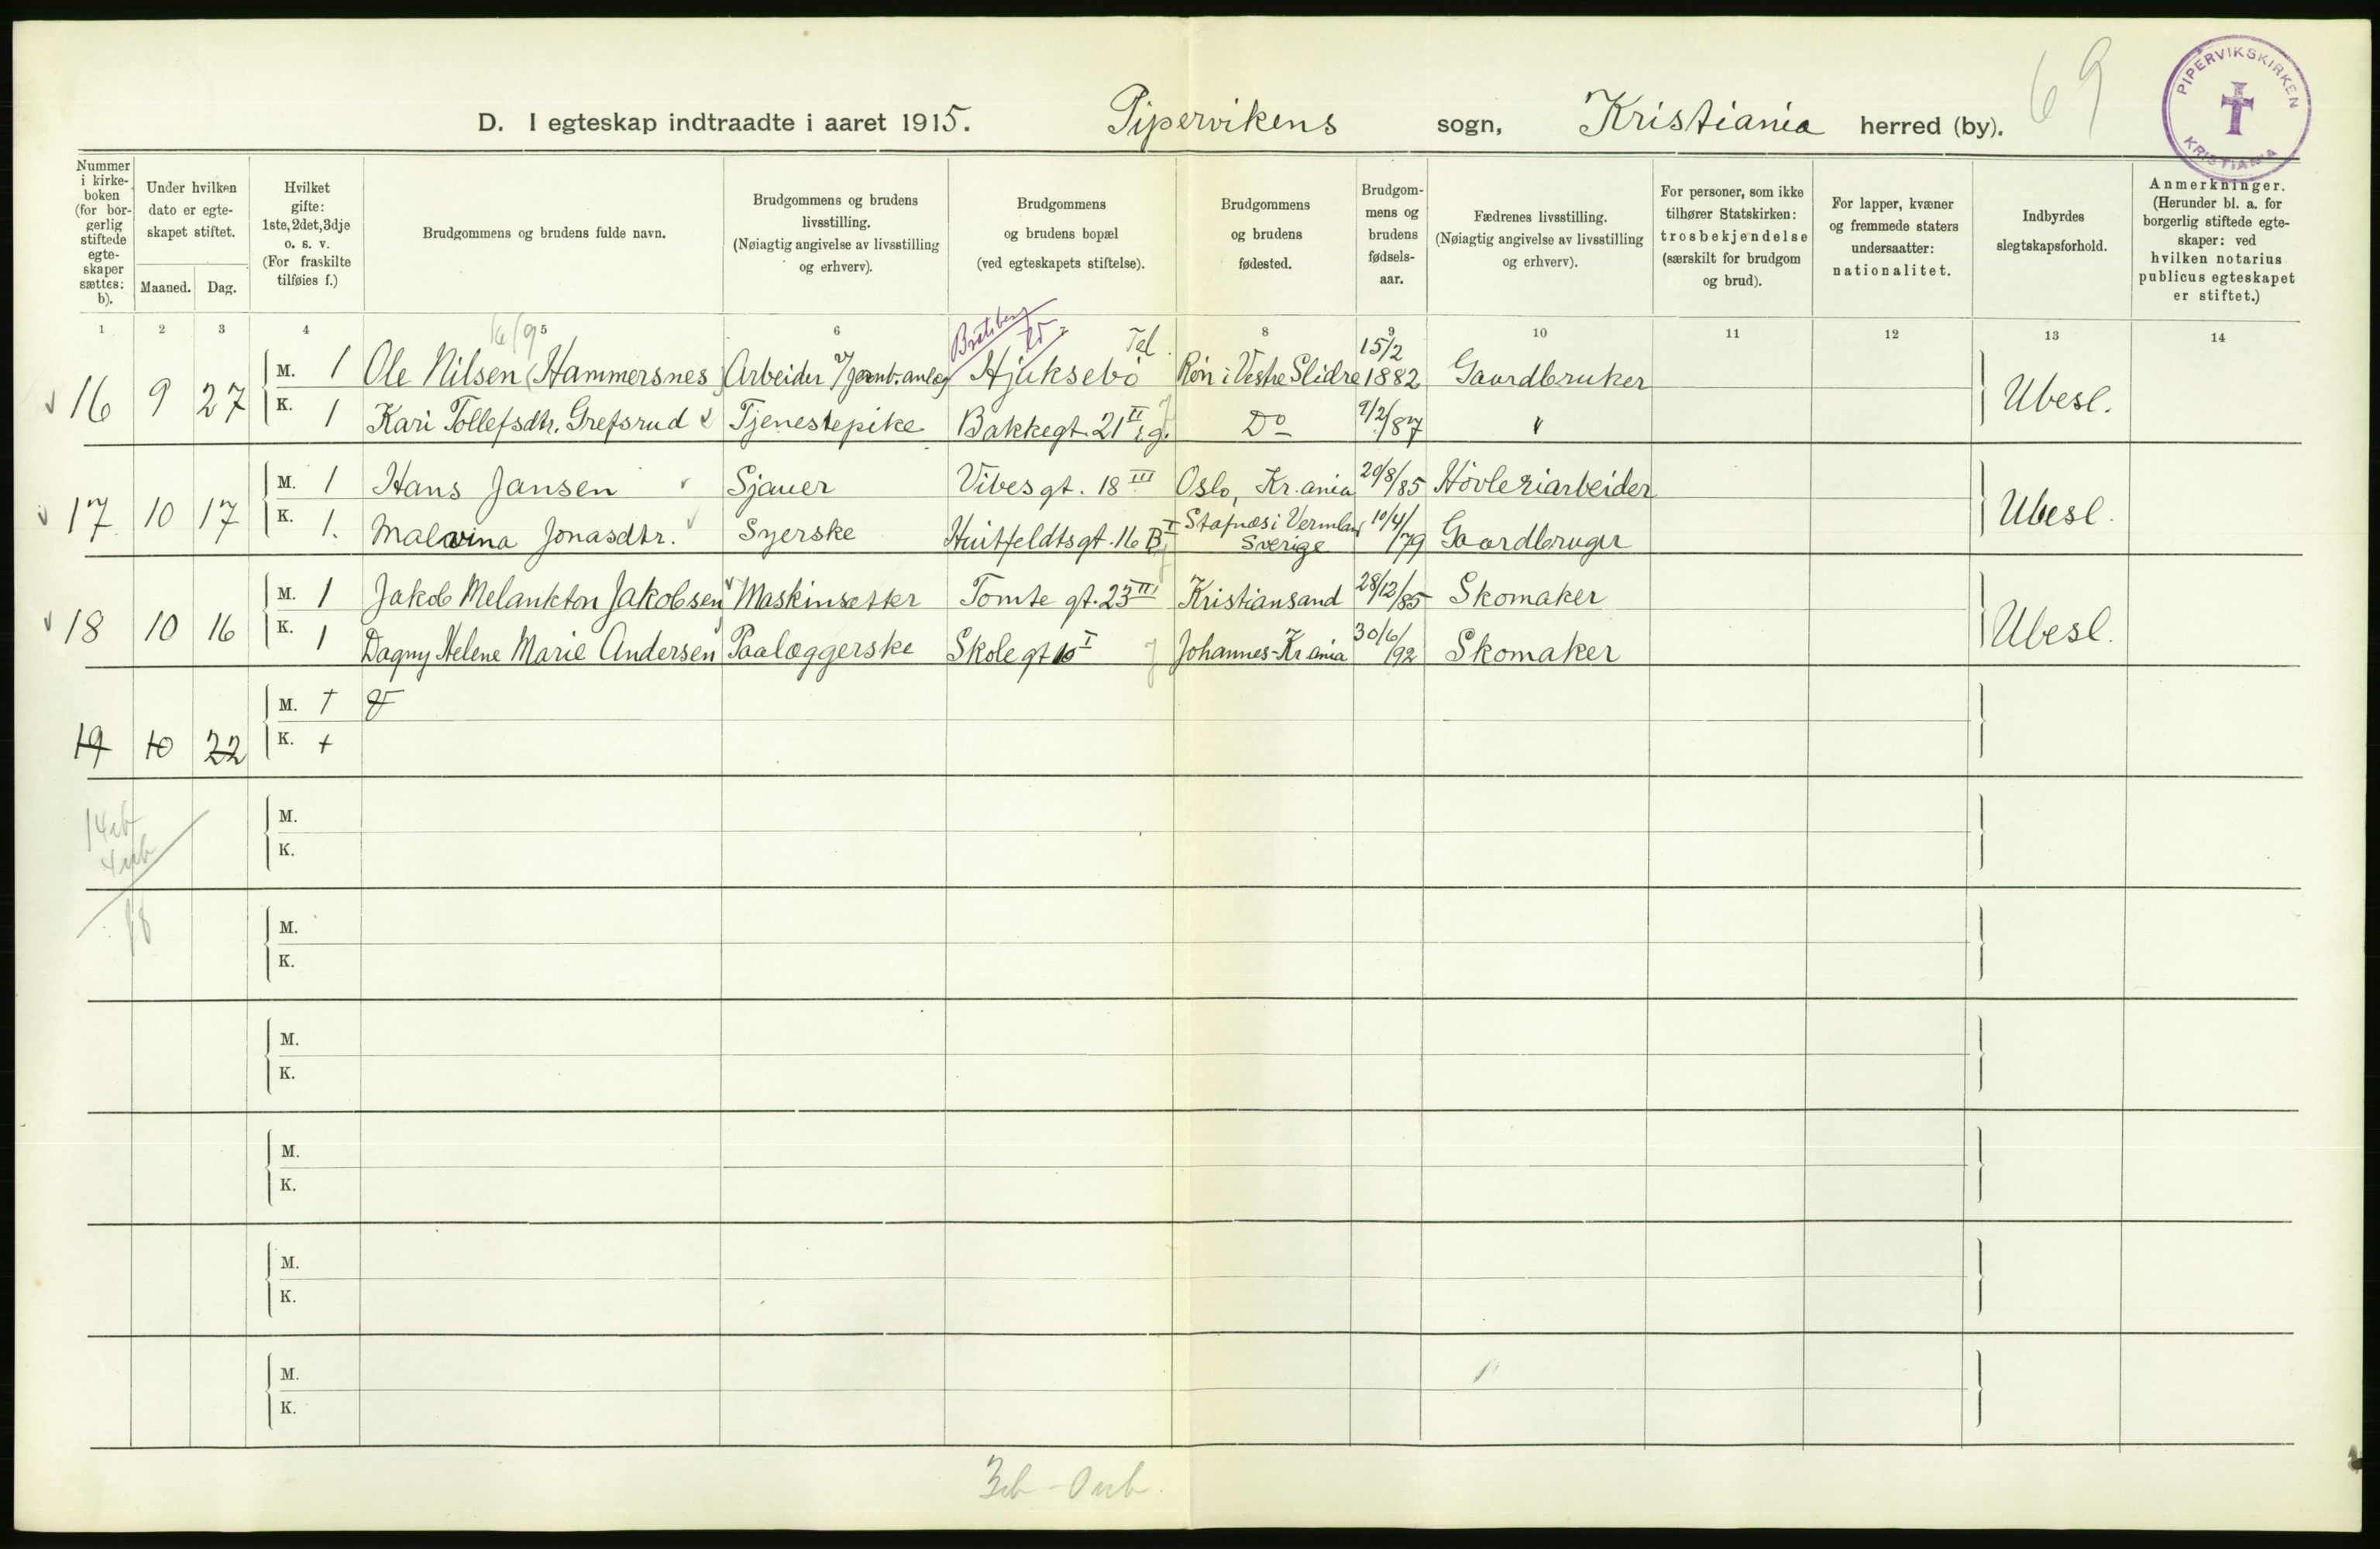 69
PIPERVIKSKIRKEN
KRISTIANIA
D. I egteskap indtraadte i aaret 1915. Pipervikens sogn, Kristiania herred (by).
Nummer i kirkeboken (for borgerlig stiftede egteskaper sættes: b).
Under hvilken dato er egteskapet stiftet.
Maaned. Dag.
Hvilket gifte: 1ste, 2det, 3dje o. s. v. (For fraskilte tilføies f.)
Brudgommens og brudens fulde navn.
Brudgommens og brudens livsstilling. (Nøiagtig angivelse av livsstilling og erhverv).
Brudgommens og brudens bopæl (ved egteskapets stiftelse).
Brudgommens og brudens fødested.
Brudgommens og brudens fødselsaar.
Fædrenes livsstilling. (Nøiagtig angivelse av livsstilling og erhverv).
For personer, som ikke tilhører Statskirken: trosbekjendelse (særskilt for brudgom og brud).
For lapper, kvæner og fremmede staters undersaatter: nationalitet.
Indbyrdes slegtskapsforhold.
Anmerkninger. (Herunder bl. a. for borgerlig stiftede egteskaper: ved hvilken notarius publicus egteskapet er stiftet.)
1 2 3 4 5 6 8 9 10 11 12 13 14
16/9 Bratsberg Tel. 15/2
16 9 27 M. 1 Ole Nilsen (Hammersnes) Arbeider v/Jernb.anlæg Hjuksebö Røn i Vestre Slidre 1882 Gaardbruker Ubesl.
K. 1 Kari Tollefsdtr. Grefsrud Tjenestepike Bakkegt. 21 II Do 9/2/87 "
17 10 17 M. 1 Hans Jansen Sjauer Vibes gt. 18 III Oslo, Kr.ania 29/8/85 Hövleriarbeider Ubesl.
K. 1. Malvina Jonasdtr. Syerske Huitfeldtsgt. 16 B I Stafnæs i Vermland Sverige 10/4/79 Gaardbruger
18 10 16 M. 1 Jakob Melankton Jakobsen Maskinsetter Tomte gt. 23 III Kristiansand 28/12/85 Skomaker Ubesl.
K. 1 Dagny Helene Marie Andersen Paalæggerske Skole gt 10 I Johannes-Kr.ania 30/6/92 Skomaker
19 10 22 M. †
K. +
M.
K.
14 eb
4 ub
18
M.
K.
M.
K.
M.
K.
M.
K.
M.
K.
3 eb - 0 ub.